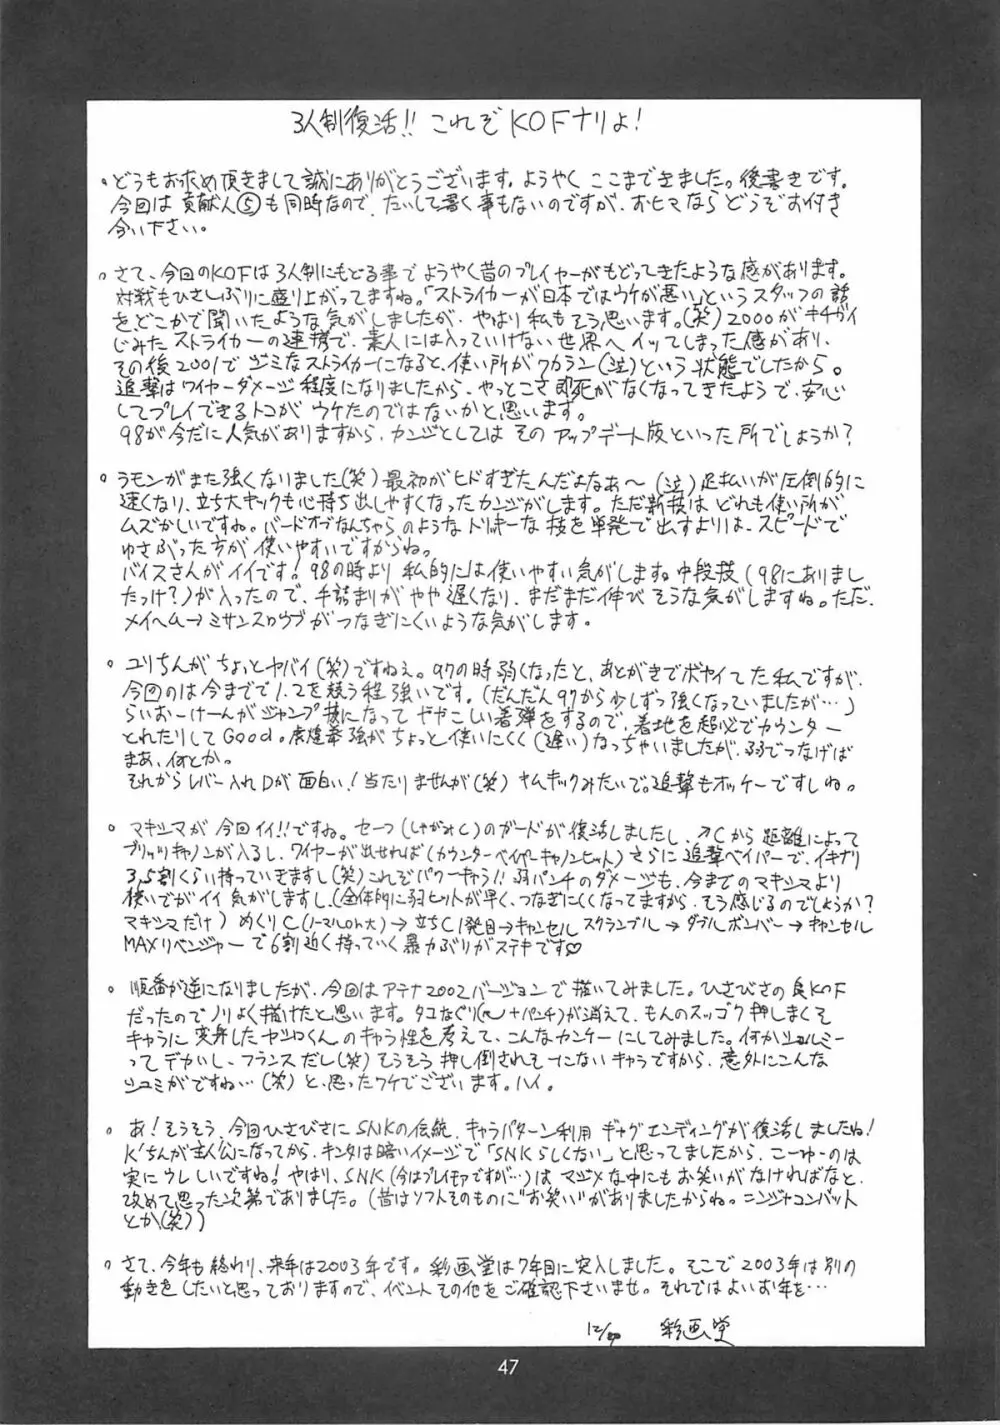 3人制復活!! これぞKOFナリよ!
・どうもお求め頂きまして誠にありがとうございます。ようやくここまできました。後書きです。
今回は貢献人⑤も同時なので、たいして書く事もないのですが、おヒマならどうぞお付き
合い下さい。
・さて、今回のKOFは3人制にもどる事でようやく昔のプレイヤーがもどってきたような感があります。
対戦もひさしぶりに盛り上がってますね。「ストライカーが日本ではウケが悪い」というスタッフの話
を、どこかで聞いたような気がしましたが、やはり私もそう思います。(笑)2000がキチガイ
じみたストライカーの連携で、素人には入っていけない世界へイッてしまった感があり、
その後2001でジミなストライカーになると、使い所がワカラン(泣)という状態でしたから。
追撃はワイヤーダメージ程度になりましたから、やっとこさ即死がなくなってきたようで、安心
してプレイできるトコがウケたのではないかと思います。
98が今だに人気がありますから、カンジとしてはそのアップデート版といった所でしょうか?
・ラモンがまた強くなりました(笑)最初がヒドすぎたんだよなあ〜(泣)足払いが圧倒的に
速くなり、立ち大キックも心持ち出しやすくなったカンジがします。ただ新技はどれも使い所が
ムズかしいですね。バードオブなんちゃらのようなトリッキーな技を単発で出すよりは、スピードで
ゆさぶった方が使いやすいですからね。
バイスさんがイイです!98の時より私的には使いやすい気がします。中段技(98にありまし
たっけ?)が入ったので、手詰まりがやや遅くなり、まだまだ伸びそうな気がしますね。ただ、
メイヘム→ミサンスロウプがつなぎにくいような気がします。
・ユリちんがちょっとヤバイ(笑)ですねぇ。97の時弱くなったと、あとがきでボヤイてた私ですが、
今回のは今までで1.2を競う程強いです。(だんだん97から少しずつ強くなっていましたが…)
らいおーけーんがジャンプ技になってややこしい着弾をするので、着地を超必でカウンター
とれたりしてGood。虎煌拳強がちょっと使いにくく(遅い)なっちゃいましたが、弱でつなげば
まあ、何とか。
それからレバー入れDが面白い!当たりませんが(笑)ナムキックみたいで。追撃もオッケーですしね。
・マキシマが今回イイ!!ですね。せーつ(しゃがみC)のガードが復活しましたし、↗Cから距離によって
ブリッツキャノンが入るし、ワイヤーが出せれば(カウンターベイパーキャノンヒット)さらに追撃ベイパーで、イキナリ
3,5割くらい持っていきますし(笑)これぞパワーキャラ!!弱パンチのダメージも、今までのマキシマより
強いでがイイ気がしますし、(全体的に弱ヒットが早く、つなぎにくくなってますから、そう感じるのでしょうか?
マキシマだけ)めくりC(ノーマルorh大)→立ちC1発目→キャンセルスクランブル→ダブルボンバー→キャンセル
MAXリベンジャーで6割近く持っていく暴力ぶりがステキです♡
・順番が逆になりましたが、今回はアテナ2002バージョンで描いてみました。ひさびさの良KOF
だったのでノリよく描けたと思います。タコなぐり(+パンチ)が消えて、もんのスッゴク押しまくる
キャラに変身したヤシロくんのキャラ性を考えて、こんなカンケーにしてみました。何かシェルミー
ってデカいし、フランスだし(笑)そうそう押し倒されそーにないキャラですから、意外にこんな
シュミがですね…(笑)と、思ったワケでございます。ハイ。
・あ!そうそう、今回ひさびさにSNKの伝統、キャラパターン利用ギャグエンディングが復活しましたね!
K'ちんが主人公になってから、キンタは暗いイメージで「SNKらしくない」と思ってましたから、こーゆーのは
実にウレしいですね!やはり、SNK(今はプレイモアですが…)はマジメな中にもお笑いがなければなと、
改めて思った次第でありました。(昔はソフトそのものに"お笑い"がありましたからね。ニンジャコンバット
とか(笑))
・さて、今年も終わり、来年は2003年です。彩画堂は7年目に突入しました。そこで2003年は別の
動きをしたいと思っておりますので、イベントその他をご確認下さいませ。それではよいお年を…
12/ 彩画堂
47